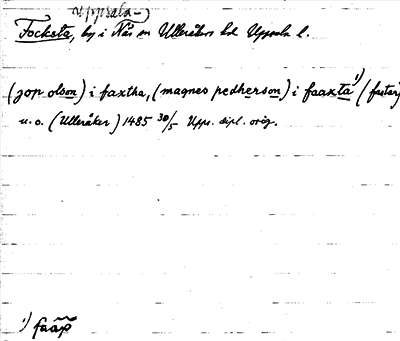 Uppsala-
Focksta, by i Näs sn Ulleråkers hd Uppsala l.
(jop olson) i faxtha, (magnes pedherson) i faaxta¹) (fasten)
u.o. (Ulleråker) 1485 30/5 Upps. dipl. orig.
¹) faap